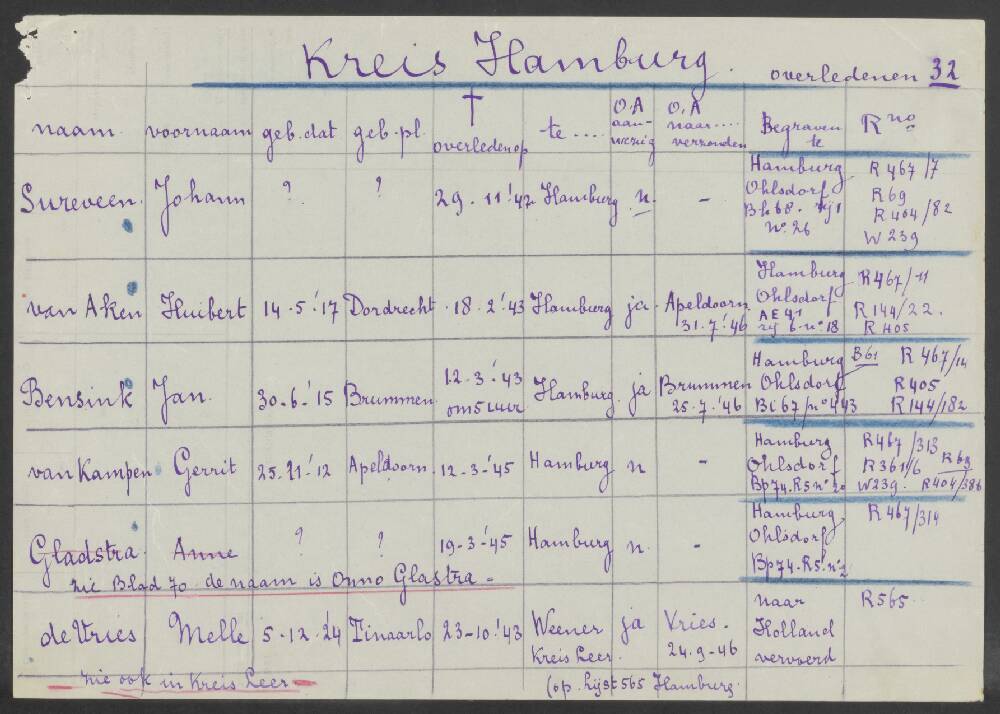 Kreis Hamburg. overledenen 32
naam. voornaam geb.dat geb.pl. † overleden op te .... O,A aanwezig O,A naar.... verzonden Begraven te R no
Sureveen. Johann ? ? 29. 11.'42 Hamburg n. - Hamburg R 467/7
Ohlsdorf R69
Bh 68. rij 1 R 404/82
No. 26 W 239
van Aken Huibert 14.5.'17 Dordrecht 18.2.'43 Hamburg ja. Apeldoorn 31.7.'46 Hamburg R 467/11
Ohlsdorf R 144/22.
AE 41 rij 6-no 18 R 405
Bensink Jan. 30-6-'15 Brummen 12-3-'43 om 5 uur Hamburg. ja Brummen 25.7.'46 Hamburg B61 R 467/14
Ohlsdorf R405
Bi 67/no 443 R 144/182
van Kampen Gerrit 25.11-'12 Apeldoorn. 12-3-'45 Hamburg n - Hamburg R 467/313
Ohlsdorf R361/6 R 63
Bp 74. R5 no 20 W239. R 404/386
Gladstra. Anne ? ? 19-3-'45 Hamburg n. - Hamburg R 467/314
Ohlsdorf
Bp 74. R5. no 2
zie Blad 70 de naam is Onno Glastra -
de Vries Melle 5-12.'24 Tinaarlo 23-10.'43 Weener Kreis Leer. ja Vries. 24.9-46 naar R 565
Holland
vervoerd
- zie ook in Kreis Leer - (op. Lijst 565 Hamburg.